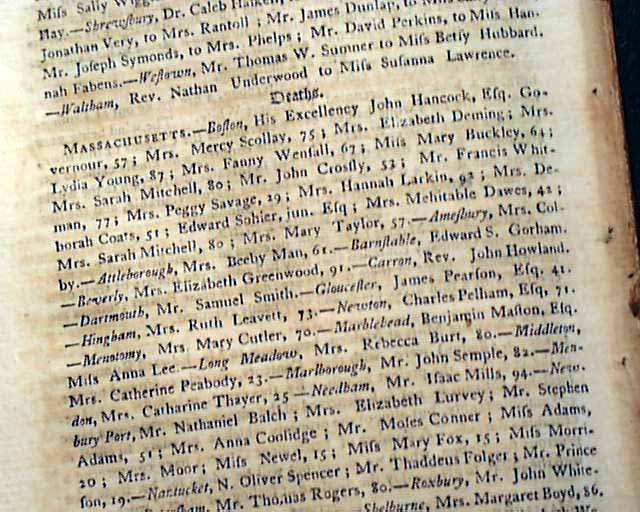 Miſs Sally
Hay.—Shrewſbury, Dr. Caleb
Jonathan Very, to Mrs. Rantoll ; Mr. James Dunlap, to
Mr. Joſeph Symonds, to Mrs. Phelps ; Mr. David Perkins, to Miſs Han-
nah Fabens.—Weſtown, Mr. Thomas W. Sumner to Miſs Betſy Hubbard.
—Waltham, Rev. Nathan Underwood to Miſs Suſanna Lawrence.
Deaths.
MASSACHUSETTS.—Boſton, His Excellency John Hancock, Eſq. Go-
vernour, 57 ; Mrs. Mercy Scollay, 75 ; Mrs. Elizabeth Deming ; Mrs.
Lydia Young, 87 ; Mrs. Fanny Wenſall, 67 ; Miſs Mary Buckley, 64 ;
Mrs. Sarah Mitchell, 80 ; Mr. John Croſſy, 52 ; Mr. Francis Whit-
man, 77 ; Mrs. Peggy Savage, 29 ; Mrs. Hannah Larkin, 92 ; Mrs. De-
borah Coats, 51 ; Edward Sohier, jun. Eſq ; Mrs. Mehitable Dawes, 42 ;
Mrs. Sarah Mitchell, 80 ; Mrs. Mary Taylor, 57.—Ameſbury, Mrs. Col-
by.—Attleborough, Mrs. Beeby Man, 61.—Barnſtable, Edward S. Gorham.
—Beverly, Mrs. Elizabeth Greenwood, 91.—Carron, Rev. John Howland.
—Dartmouth, Mr. Samuel Smith.—Glouceſter, James Pearſon, Eſq. 41.
—Hingham, Mrs. Ruth Leavett, 73.—Newton, Charles Pelham, Eſq. 71.
—Menotomy, Mrs. Mary Cutler, 70.—Marblehead, Benjamin Maſton, Eſq.
Miſs Anna Lee.—Long Meadow, Mrs. Rebecca Burt, 80.—Middleton,
Mrs. Catherine Peabody, 23.—Marlborough, Mr. John Semple, 82.—Men-
don, Mrs. Catharine Thayer, 25—Needham, Mr. Iſaac Mills, 94.—New-
bury Port, Mr. Nathaniel Balch ; Mrs. Elizabeth Lurvey ; Mr. Stephen
Adams, 51 ; Mrs. Anna Coolidge ; Mr. Moſes Conner ; Miſs Adams,
20 ; Mrs. Moor ; Miſs Newel, 15 ; Miſs Mary Fox, 15 ; Miſs Morri-
ſon, 19.—Nantucket, N. Oliver Spencer ; Mr. Thaddeus Folger ; Mr. Prince
Mr. Thomas Rogers, 80.—Roxbury, Mr. John White-
Shelburne, Mrs. Margaret Boyd, 86.